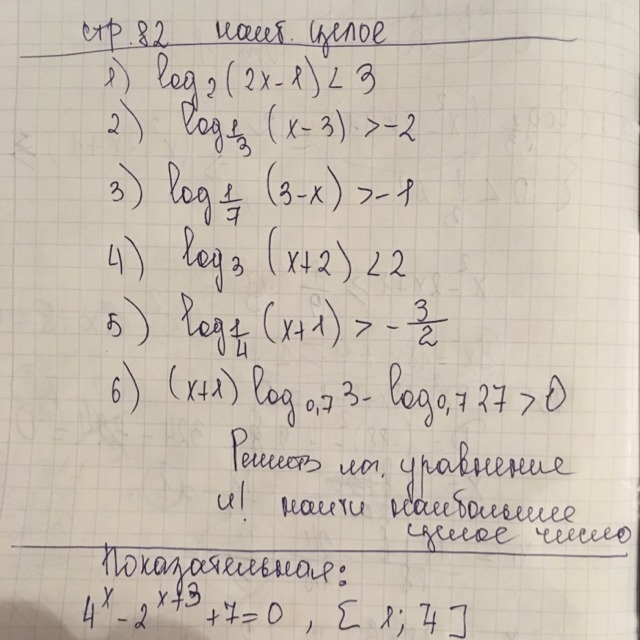 стр. 82 наиб. целое
1) log₂(2x-1) < 3
2) log_{1/3} (x-3) > -2
3) log_{1/7} (3-x) > -1
4) log₃ (x+2) < 2
5) log_{1/4} (x+1) > -3/2
6) (x+1) log₀,₇ 3 - log₀,₇ 27 > 0
Решить уравнение
и! найти наибольшее
целое число
Показательная:
4^x - 2^{x+3} + 7 = 0 , [1; 7]